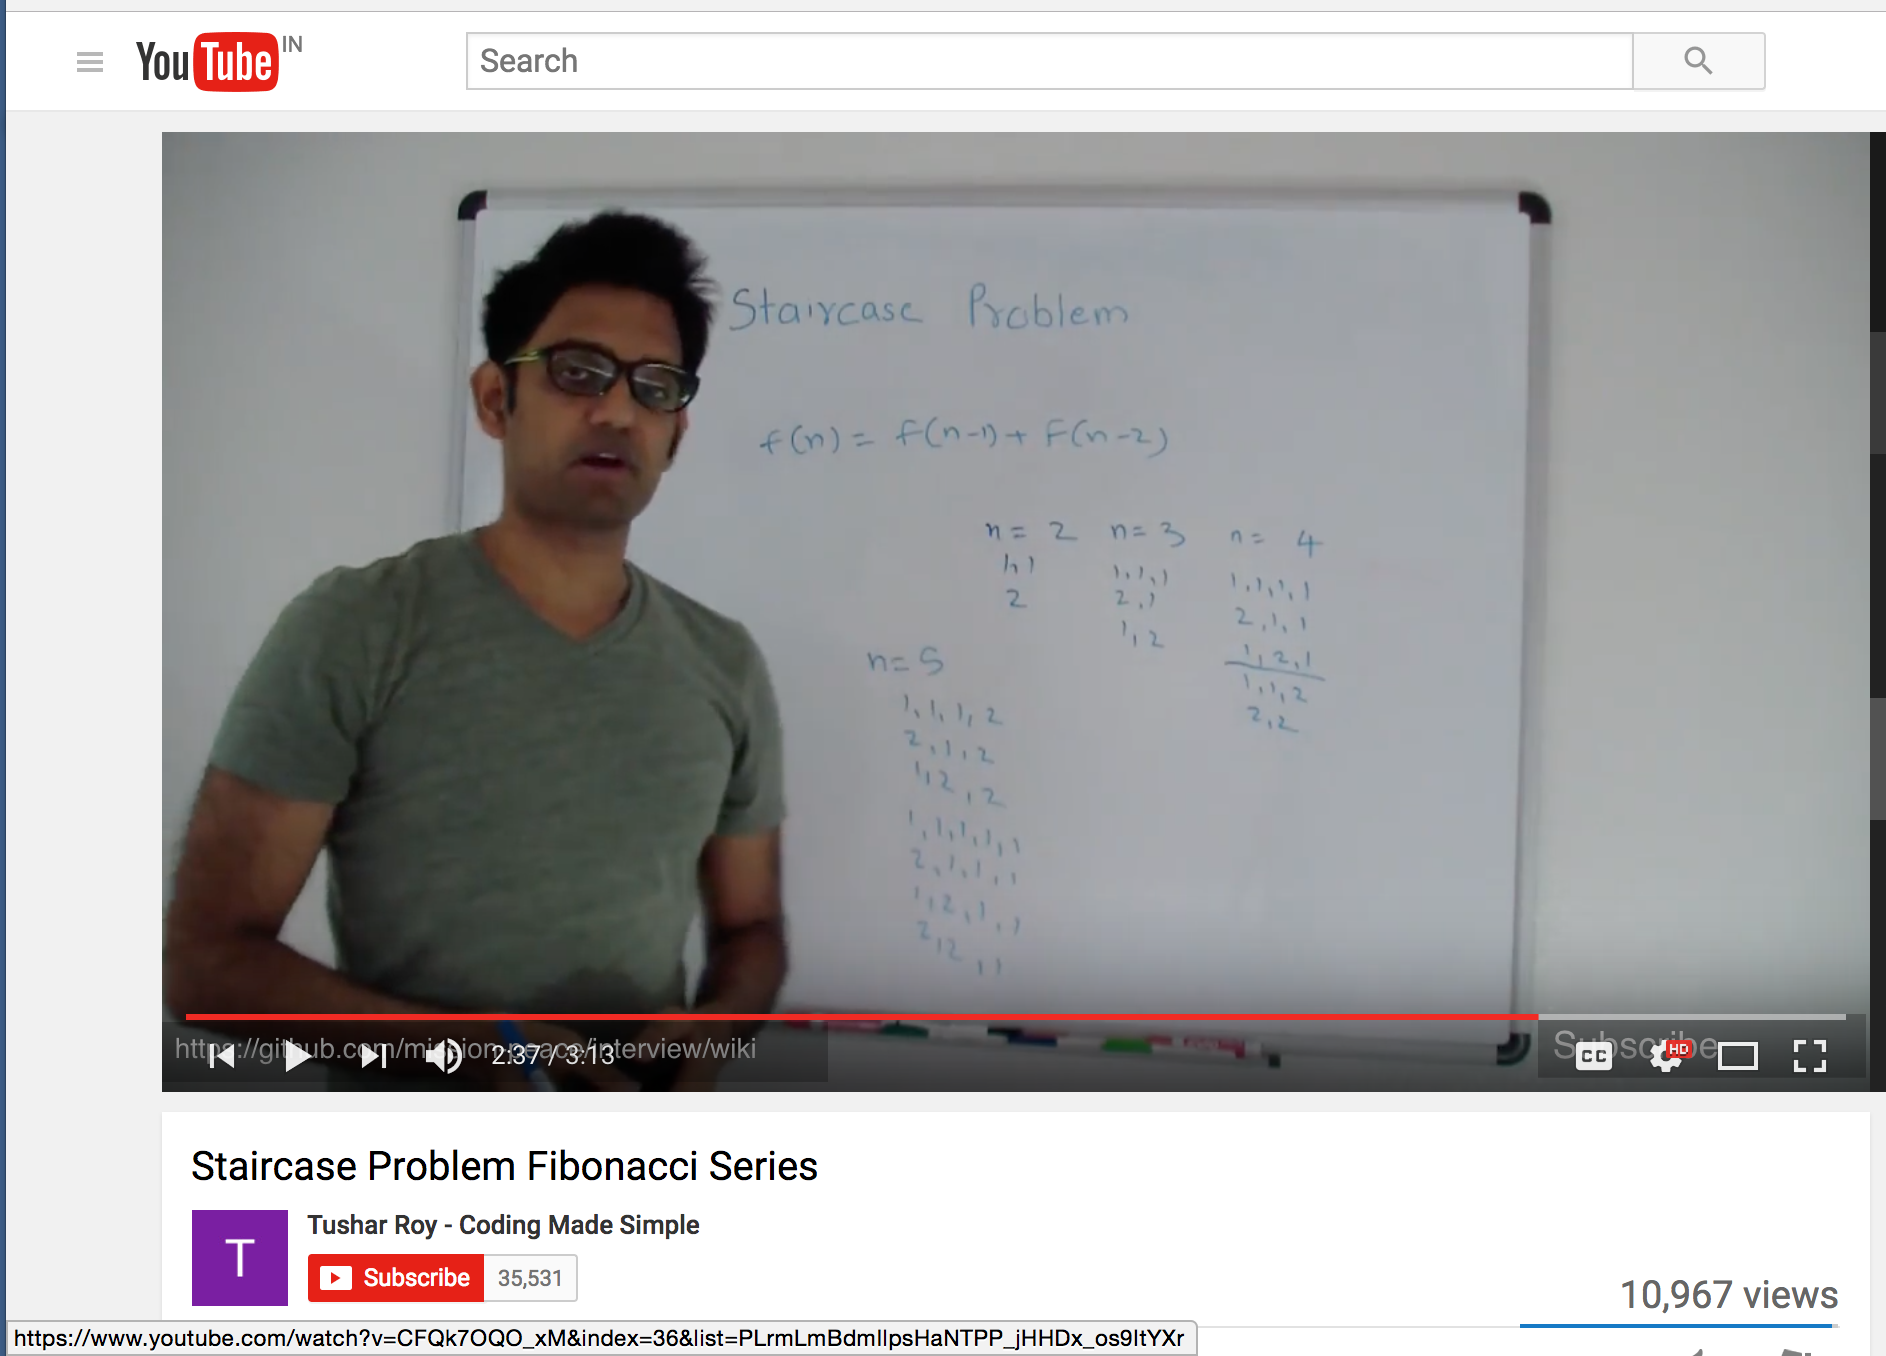 YouTube IN
Search
Staircase Problem
f(n) = f(n-1) + F(n-2)
n = 2 n = 3 n = 4
1,1
2
1,1,1
2,1
1,2
1,1,1,1
2,1,1
1,2,1
1,1,2
2,2
n = 5
1,1,1,2
2,1,2
1,2,2
1,1,1,1,1
2,1,1,1
1,2,1,1
2,2,1
https://github.com/mission-peace/interview/wiki
2:37 / 3:13
Subscribe
CC
HD
Staircase Problem Fibonacci Series
T
Tushar Roy - Coding Made Simple
Subscribe 35,531
10,967 views
https://www.youtube.com/watch?v=CFQk7OQO_xM&index=36&list=PLrmLmBdmIlpsHaNTPP_jHHDx_os9ItYXr